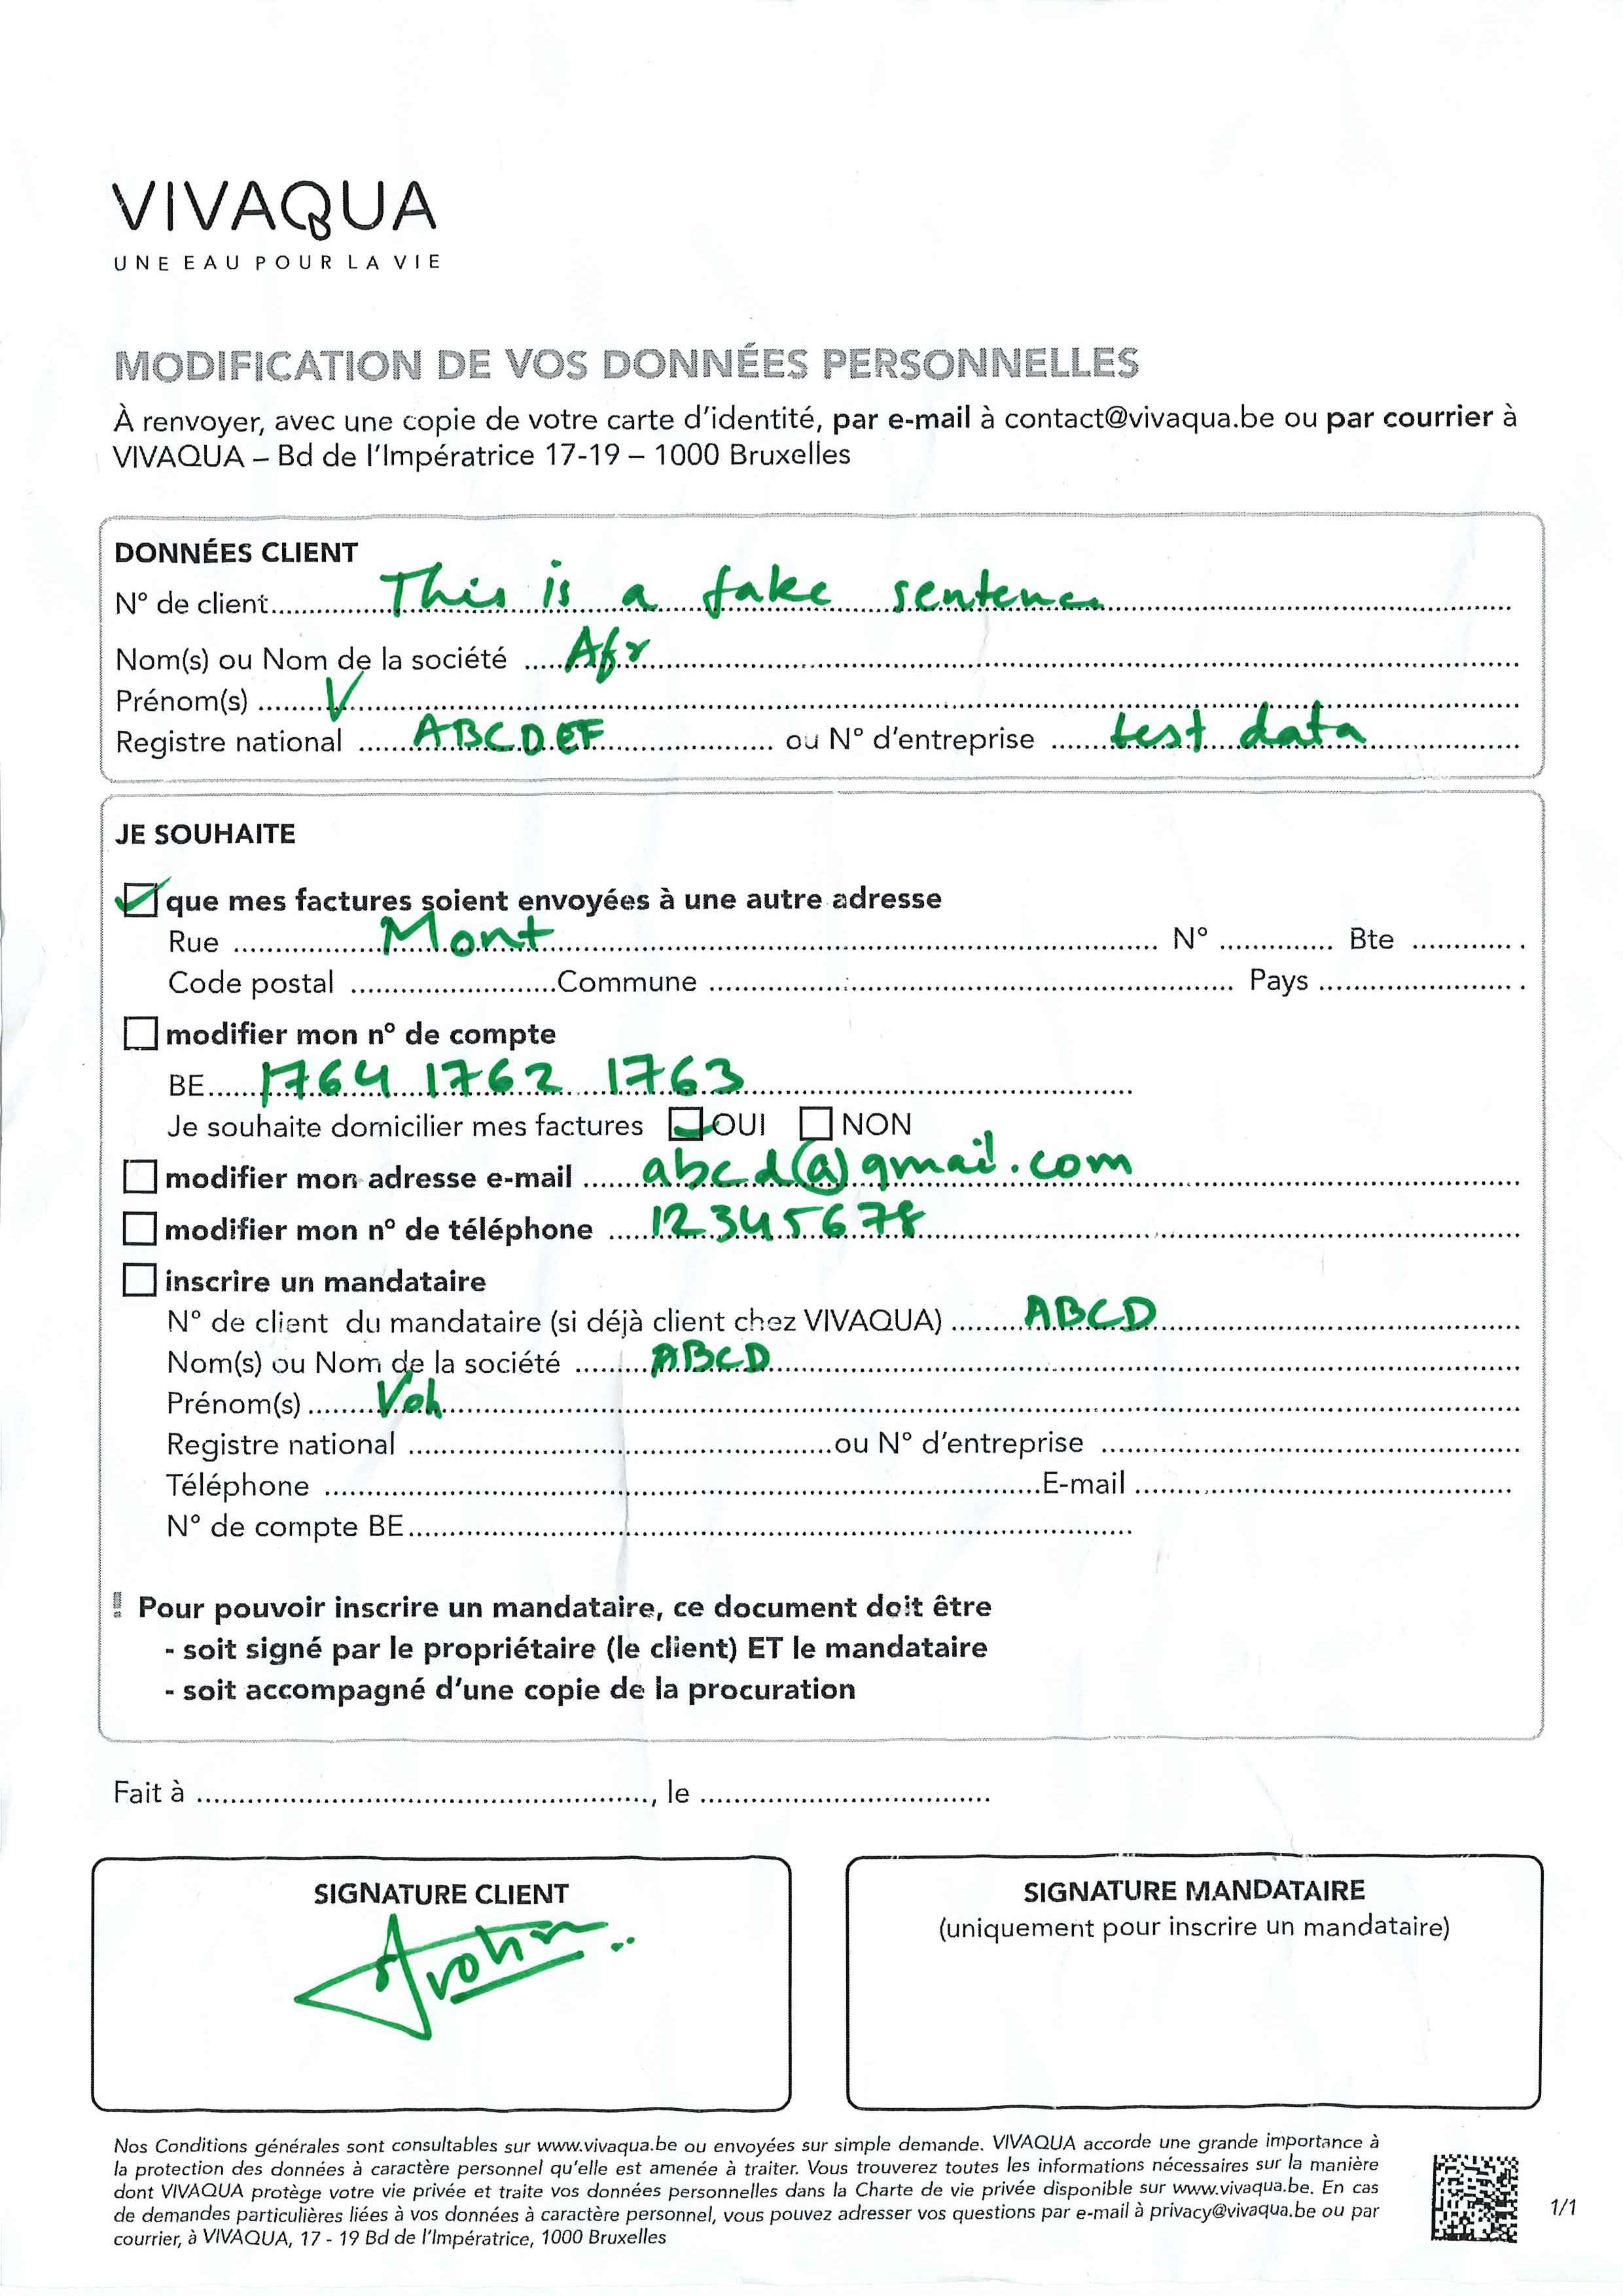 VIVAQUA
UNE EAU POUR LA VIE
MODIFICATION DE VOS DONNÉES PERSONNELLES
À renvoyer, avec une copie de votre carte d'identité, par e-mail à contact@vivaqua.be ou par courrier à
VIVAQUA – Bd de l'Impératrice 17-19 – 1000 Bruxelles
DONNÉES CLIENT
N° de client This is a fake sentence
Nom(s) ou Nom de la société Afr
Prénom(s) V
Registre national ABCDEF ou N° d'entreprise test data
JE SOUHAITE
que mes factures soient envoyées à une autre adresse
Rue Mont N° Bte
Code postal Commune Pays
modifier mon n° de compte
BE 1764 1762 1763
Je souhaite domicilier mes factures OUI NON
modifier mon adresse e-mail abcd@gmail.com
modifier mon n° de téléphone 12345678
inscrire un mandataire
N° de client du mandataire (si déjà client chez VIVAQUA) ABCD
Nom(s) ou Nom de la société ABCD
Prénom(s) Voh
Registre national ou N° d'entreprise
Téléphone E-mail
N° de compte BE
! Pour pouvoir inscrire un mandataire, ce document doit être
- soit signé par le propriétaire (le client) ET le mandataire
- soit accompagné d'une copie de la procuration
Fait à , le
SIGNATURE CLIENT
SIGNATURE MANDATAIRE
(uniquement pour inscrire un mandataire)
Nos Conditions générales sont consultables sur www.vivaqua.be ou envoyées sur simple demande. VIVAQUA accorde une grande importance à
la protection des données à caractère personnel qu'elle est amenée à traiter. Vous trouverez toutes les informations nécessaires sur la manière
dont VIVAQUA protège votre vie privée et traite vos données personnelles dans la Charte de vie privée disponible sur www.vivaqua.be. En cas
de demandes particulières liées à vos données à caractère personnel, vous pouvez adresser vos questions par e-mail à privacy@vivaqua.be ou par
courrier, à VIVAQUA, 17 - 19 Bd de l'Impératrice, 1000 Bruxelles
1/1